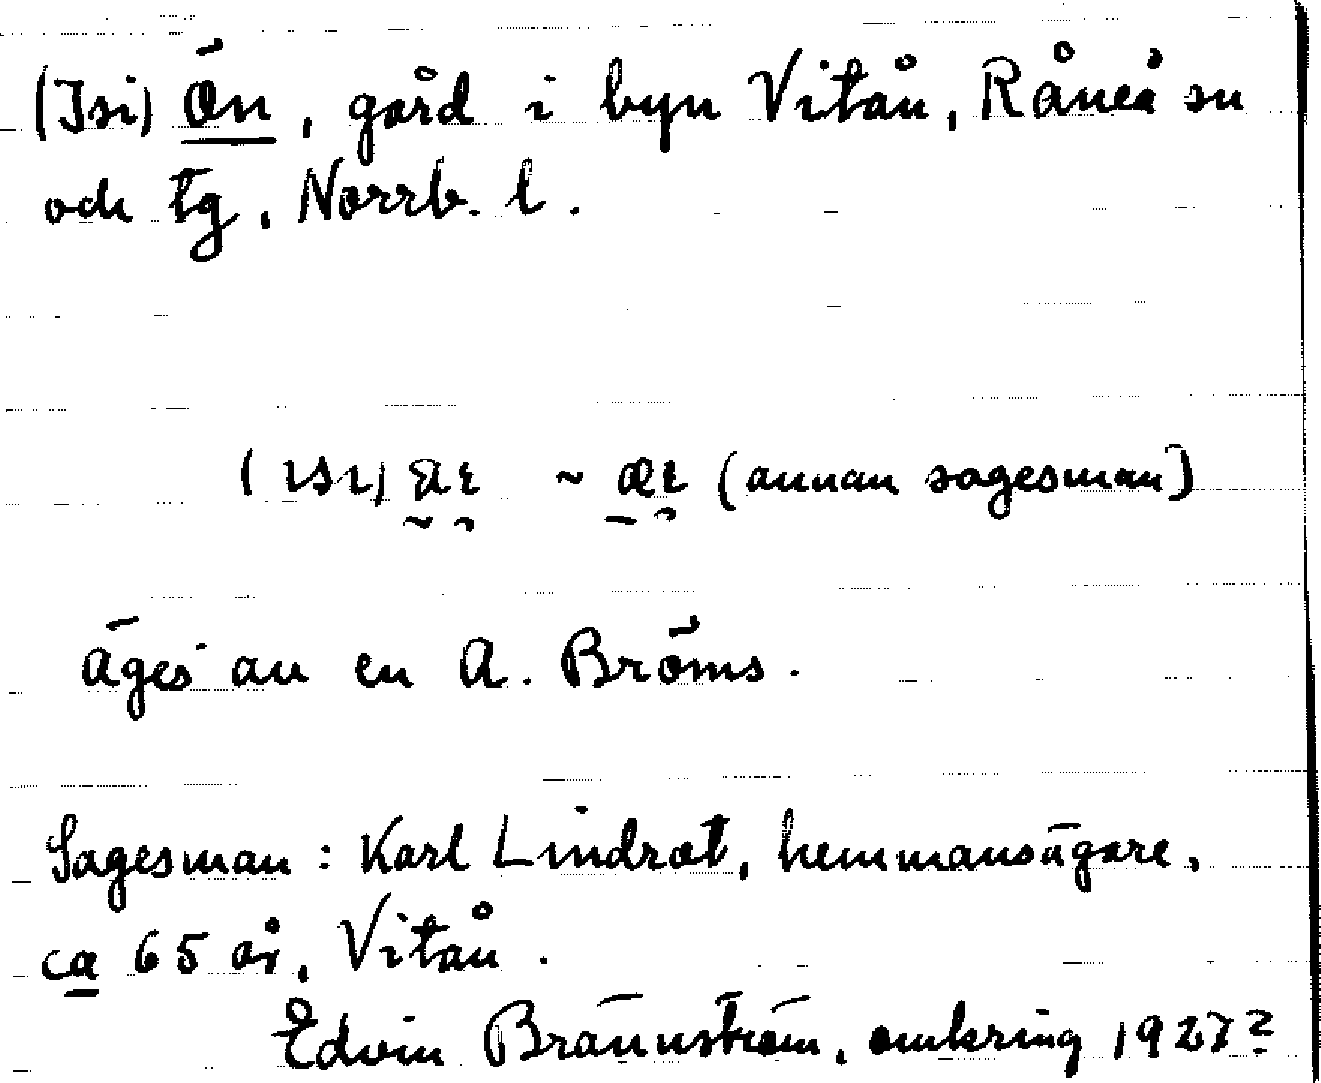 (Isi) Ön, gård i byn Vitån, Råneå sn
och tg, Norrb. l.
~ (annan sagesman)
äges av en A. Bröms.
Sagesman: Karl Lindrot, hemmansägare,
ca 65 år, Vitån.
Edvin Brännström, omkring 1927?